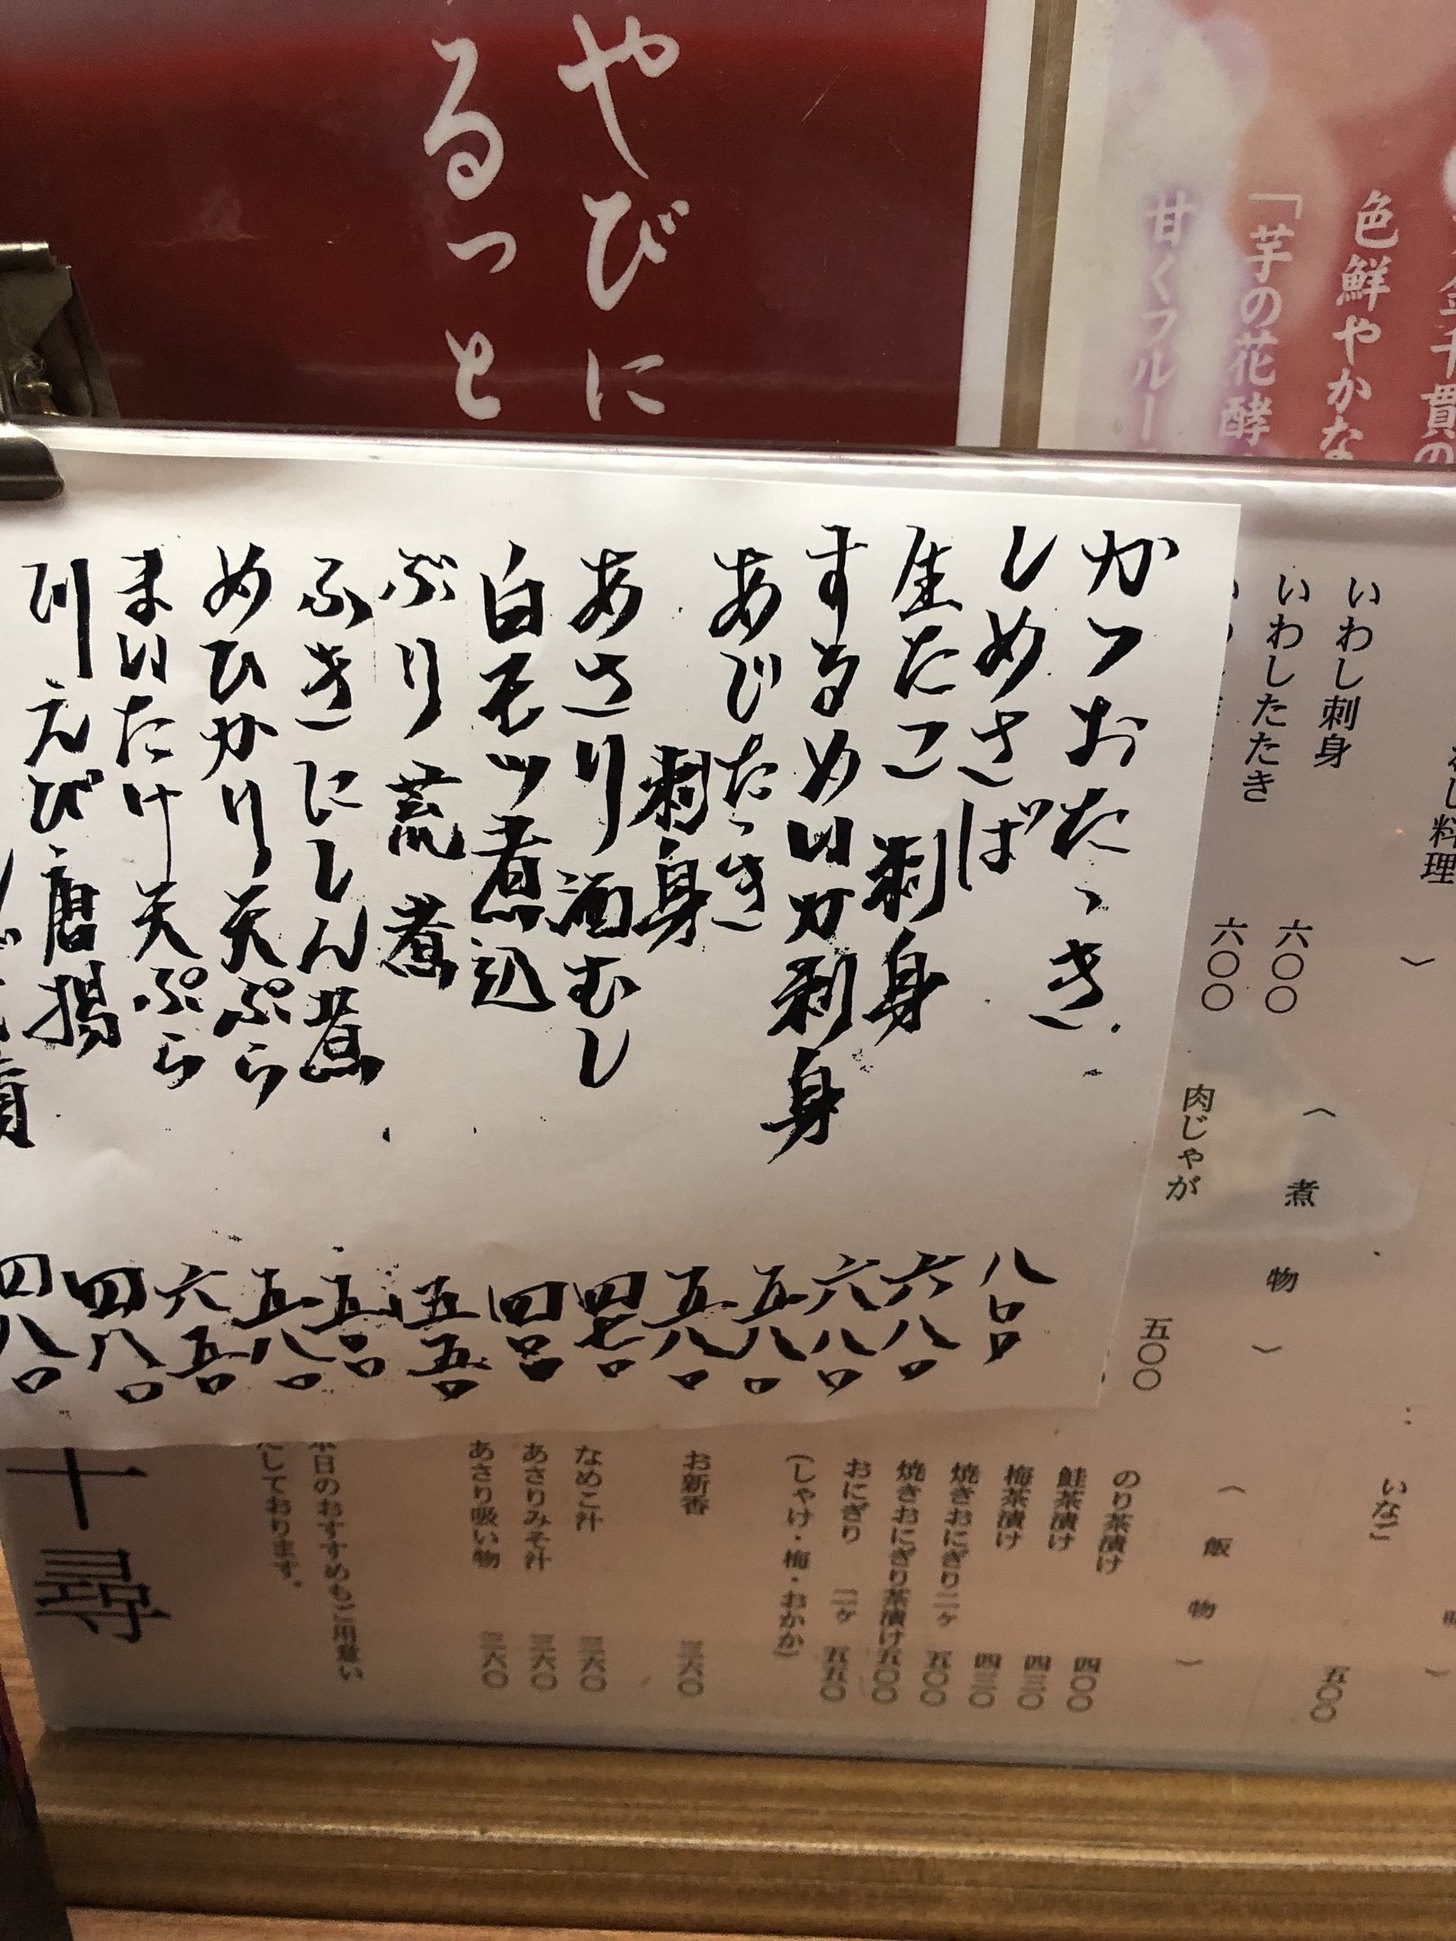 やびに
るっと
色鮮やかな
「芋の花酵
甘くフルー
かつおたゝき
八〇〇
しめさば
六八〇
生たこ刺身
六八〇
するめいか刺身
五八〇
あじたゝき
刺身
五八〇
あさり酒むし
四七〇
白モツ煮込
四五〇
ぶり荒煮
五五〇
ふきにしん煮
五五〇
めひかり天ぷら
五八〇
まいたけ天ぷら
六五〇
川えび唐揚
四八〇
四八〇
いわし刺身
六〇〇
いわしたたき
六〇〇
（煮物）
肉じゃが
五〇〇
いなご
五〇〇
（飯物）
のり茶漬け
四〇〇
鮭茶漬け
四三〇
梅茶漬け
四三〇
焼きおにぎり二ヶ
五〇〇
焼きおにぎり茶漬け五〇〇
おにぎり 二ヶ 五五〇
（しゃけ・梅・おかか）
お新香
三六〇
なめこ汁
三六〇
あさりみそ汁
三六〇
あさり吸い物
三六〇
本日のおすすめもご用意い
たしております。
十尋